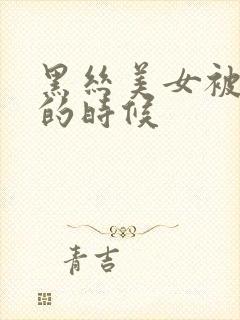 黑丝美女被
的时候
青吉